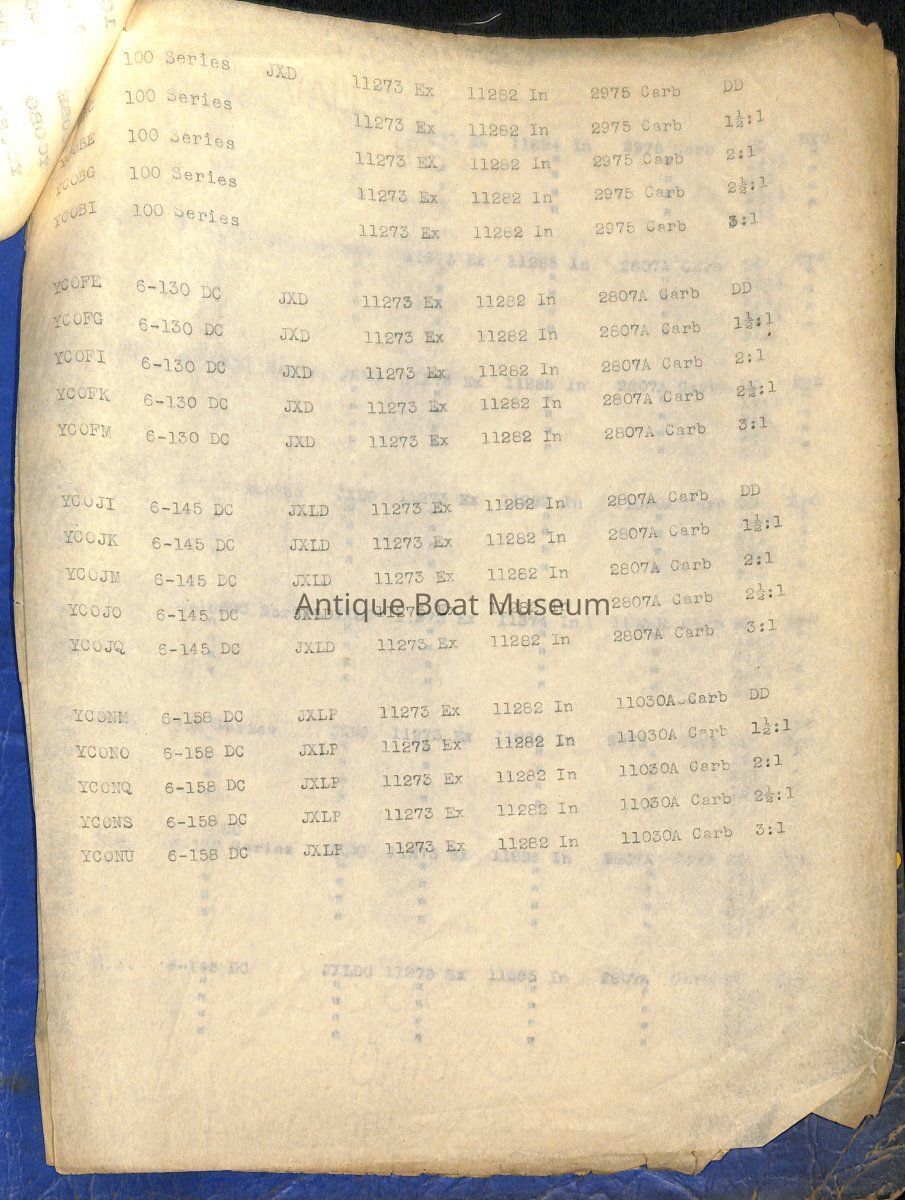 100 Series JXD 11273 Ex 11282 In 2975 Carb DD
100 Series 11273 Ex 11282 In 2975 Carb 1½:1
100 Series 11273 EX 11282 In 2975 Carb 2:1
YCOBG 100 Series 11273 Ex 11282 In 2975 Carb 2½:1
YCOBI 100 Series 11273 Ex 11282 In 2975 Carb 3:1
YCOFE 6-130 DC JXD 11273 Ex 11282 In 2807A Carb DD
YCOFG 6-130 DC JXD 11273 Ex 11282 In 2807A Carb 1½:1
YCOFI 6-130 DC JXD 11273 Ex 11282 In 2807A Carb 2:1
YCOFK 6-130 DC JXD 11273 Ex 11282 In 2807A Carb 2½:1
YCOFM 6-130 DC JXD 11273 Ex 11282 In 2807A Carb 3:1
YCOJI 6-145 DC JXLD 11273 Ex 11282 In 2807A Carb DD
YCOJK 6-145 DC JXLD 11273 Ex 11282 In 2807A Carb 1½:1
YCOJM 6-145 DC JXLD 11273 Ex 11282 In 2807A Carb 2:1
YCOJO 6-145 DC JXLD 11273 Ex 11282 In 2807A Carb 2½:1
Antique Boat Museum
YCOJQ 6-145 DC JXLD 11273 Ex 11282 In 2807A Carb 3:1
YCONM 6-158 DC JXLP 11273 Ex 11282 In 11030A Carb DD
YCONO 6-158 DC JXLP 11273 Ex 11282 In 11030A Carb 1½:1
YCONQ 6-158 DC JXLP 11273 Ex 11282 In 11030A Carb 2:1
YCONS 6-158 DC JXLP 11273 Ex 11282 In 11030A Carb 2½:1
YCONU 6-158 DC JXLP 11273 Ex 11282 In 11030A Carb 3:1